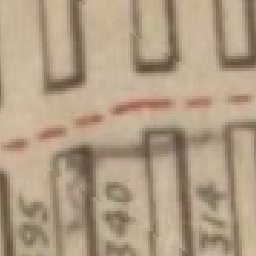 95
340
314